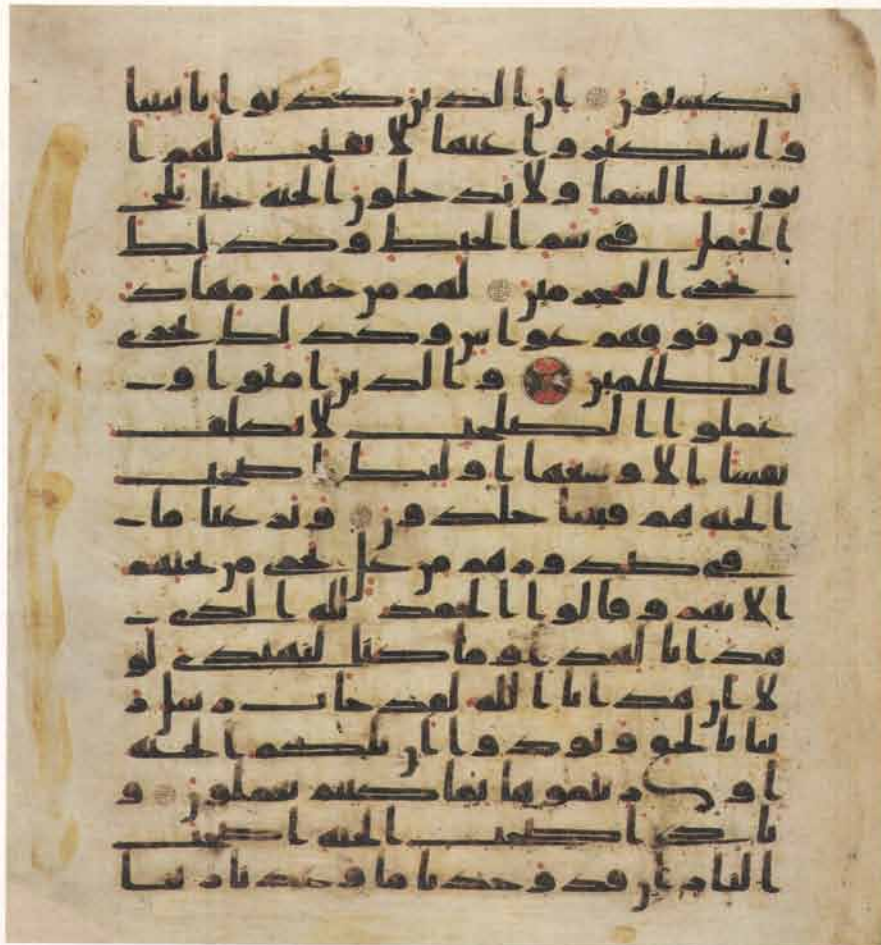 تكسبون ان الذين كذبوا بايتنا
واستكبروا عنها لا تفتح لهم ا
بوب السما ولا يدخلون الجنة حتا يلج
الجمل في سم الخيط وكذلك
نجزي المجرمين لهم من جهنم مهاد
ومن فوقهم غواش وكذلك نجزي
الظلمين والذين امنوا و
عملوا الصلحت لا نكلف
نفسا الا وسعها اولئك اصحب
الجنة هم فيها خلدون ونزعنا ما
في صدورهم من غل تجري من تحتهم
الانهر وقالوا الحمد لله الذي
هدانا لهذا وما كنا لنهتدي لو
لا ان هدانا الله لقد جات رسل ر
بنا بالحق ونودوا ان تلكم الجنة
اورثتموها بما كنتم تعملون و
نادى اصحب الجنة اصحب
النار ان قد وجدنا ما وعدنا ربنا